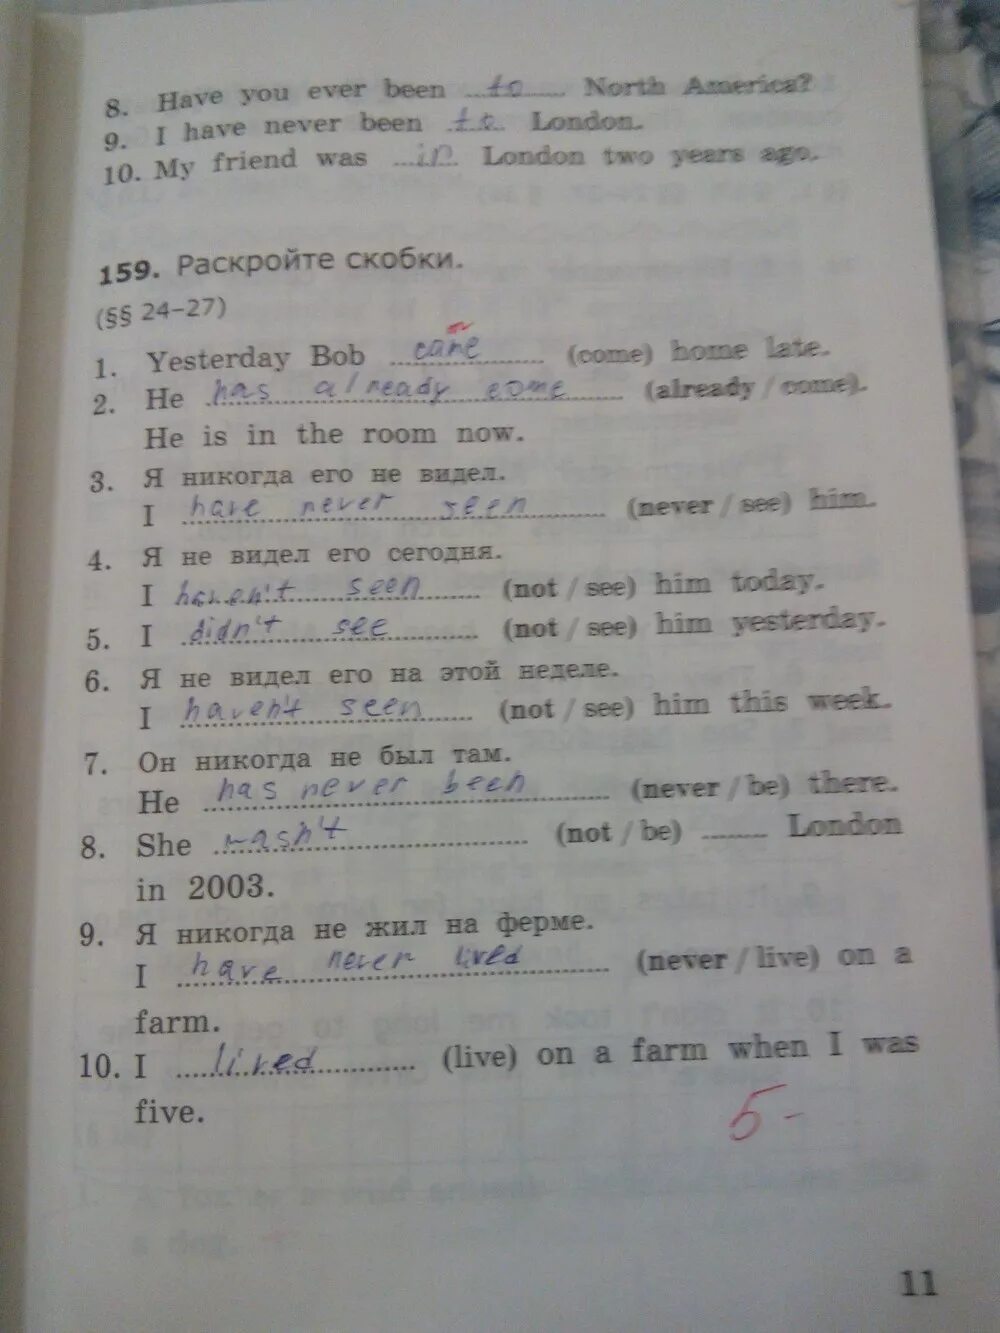 8. Have you ever been to North America?
9. I have never been to London.
10. My friend was in London two years ago.
159. Раскройте скобки.
(§§ 24–27)
m
1. Yesterday Bob cane (come) home late.
2. He has already come (already / come).
He is in the room now.
3. Я никогда его не видел.
I have never seen (never / see) him.
4. Я не видел его сегодня.
I haven't seen (not / see) him today.
5. I didn't see (not / see) him yesterday.
6. Я не видел его на этой неделе.
I haven't seen (not / see) him this week.
7. Он никогда не был там.
He has never been (never / be) there.
8. She wasn't (not / be) ........ London
in 2003.
9. Я никогда не жил на ферме.
I have never lived (never / live) on a
farm.
10. I lived (live) on a farm when I was
five.
5-
11